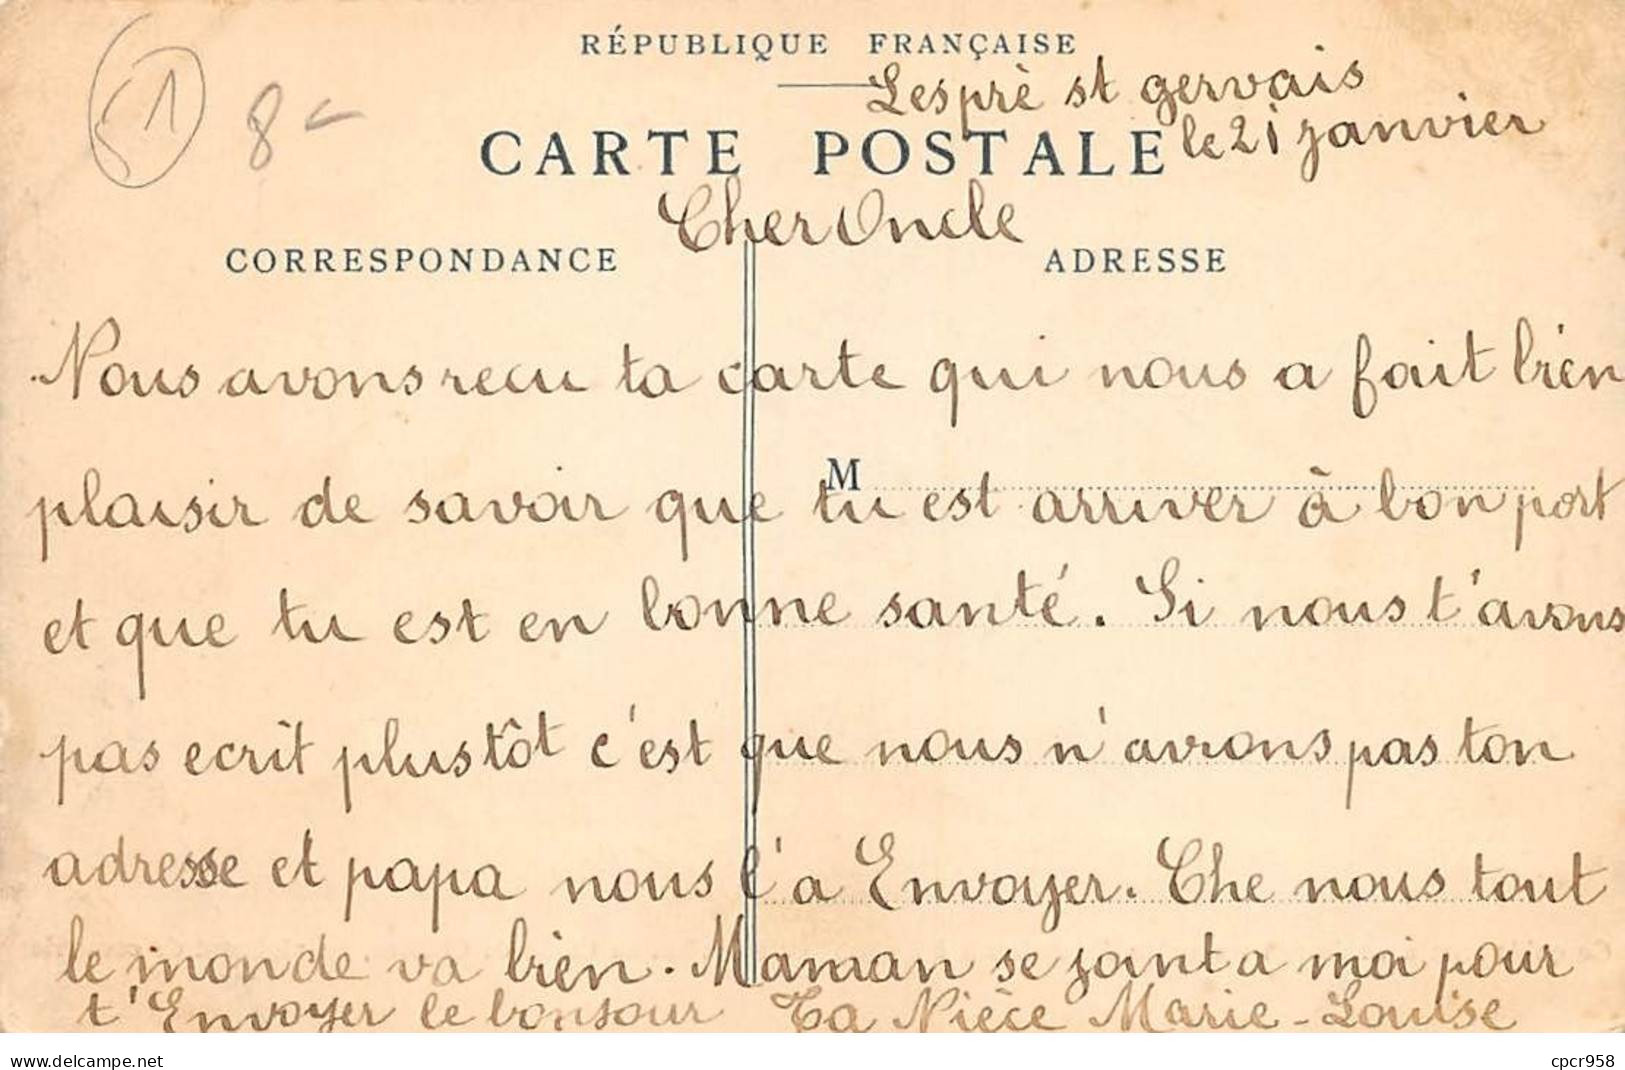 RÉPUBLIQUE FRANÇAISE
Lesprè st gervais
51
8-
CARTE POSTALE
le 21 janvier
Cher Oncle
CORRESPONDANCE
ADRESSE
Nous avons recu ta carte qui nous a fait bien
M
plaisir de savoir que tu est arriver à bon port
et que tu est en bonne santé. Si nous t'avons
pas ecrit plustôt c'est que nous n'avons pas ton
adresse et papa nous l'a Envoyer. Che nous tout
le monde va bien. Maman se joint a moi pour
t'Envoyer le bonjour Ta Nièce Marie-Louise
cpcr958